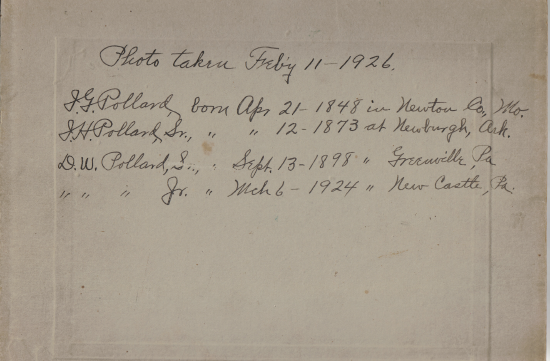 Photo taken Feb'y 11-1926.
J.G. Pollard, born Apr 21-1848 in Newton Co, Mo.
J.H. Pollard, Sr., " " 12-1873 at Newburgh, Ark.
D.W. Pollard, Sr., " Sept. 13-1898 " Greenville, Pa
" " " Jr. " Mch 6-1924 " New Castle, Pa.